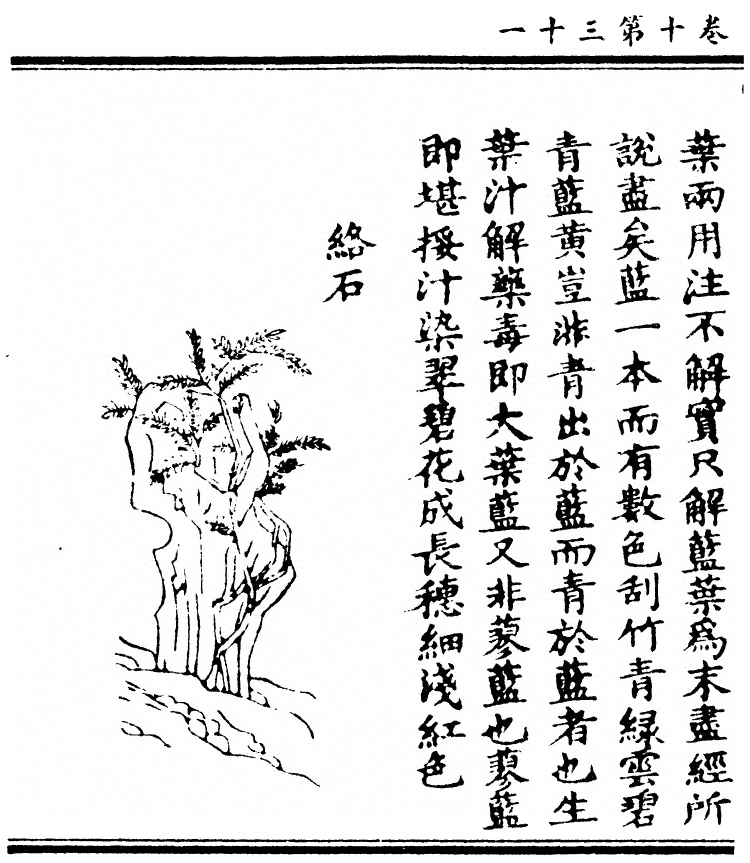 卷十第三十一
葉兩用注不解實只解藍葉為末盡經所
說盡矣藍一本而有數色刮竹青綠雲碧
青藍黃豈非青出於藍而青於藍者也生
葉汁解藥毒即大葉藍又非蓼藍也蓼藍
即堪揉汁染翠碧花成長穗細淺紅色
絡石